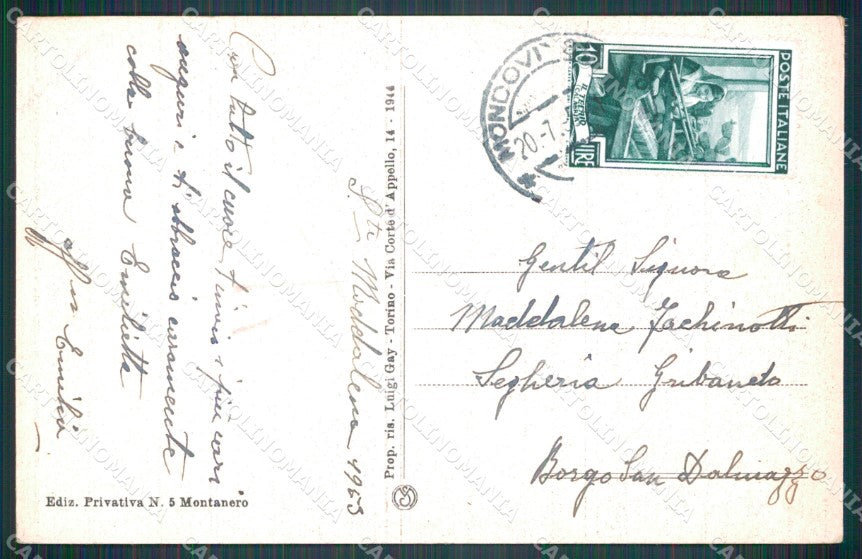 Con tutto il cuore t'invio i più cari
auguri e ti abbraccio caramente
colla buona Emilietta
aff.ma Emilia
Sta Maddalena 1953
Prop. ris. Luigi Gay - Torino - Via Corte d'Appello, 14 - 1944
Ediz. Privativa N. 5 Montanero
MONDOVI
20.7.5
POSTE ITALIANE
10
LIRE
Gentil Signora
Maddalena Fachinotti
Segheria Gribaudo
Borgo San Dalmazzo
CARTOLINOMANIA